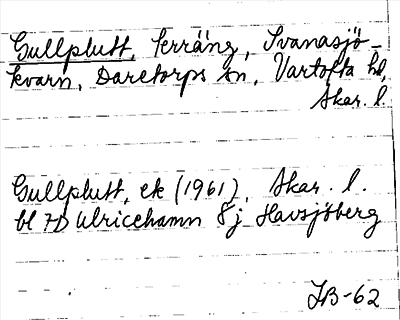 Gullplutt, terräng, Svanasjö-
kvarn, Daretorps sn, Vartofta hd,
Skar. l.
Gullplutt, ek (1961), Skar. l.
bl 7D Ulricehamn 8j Havsjöberg
JB-62